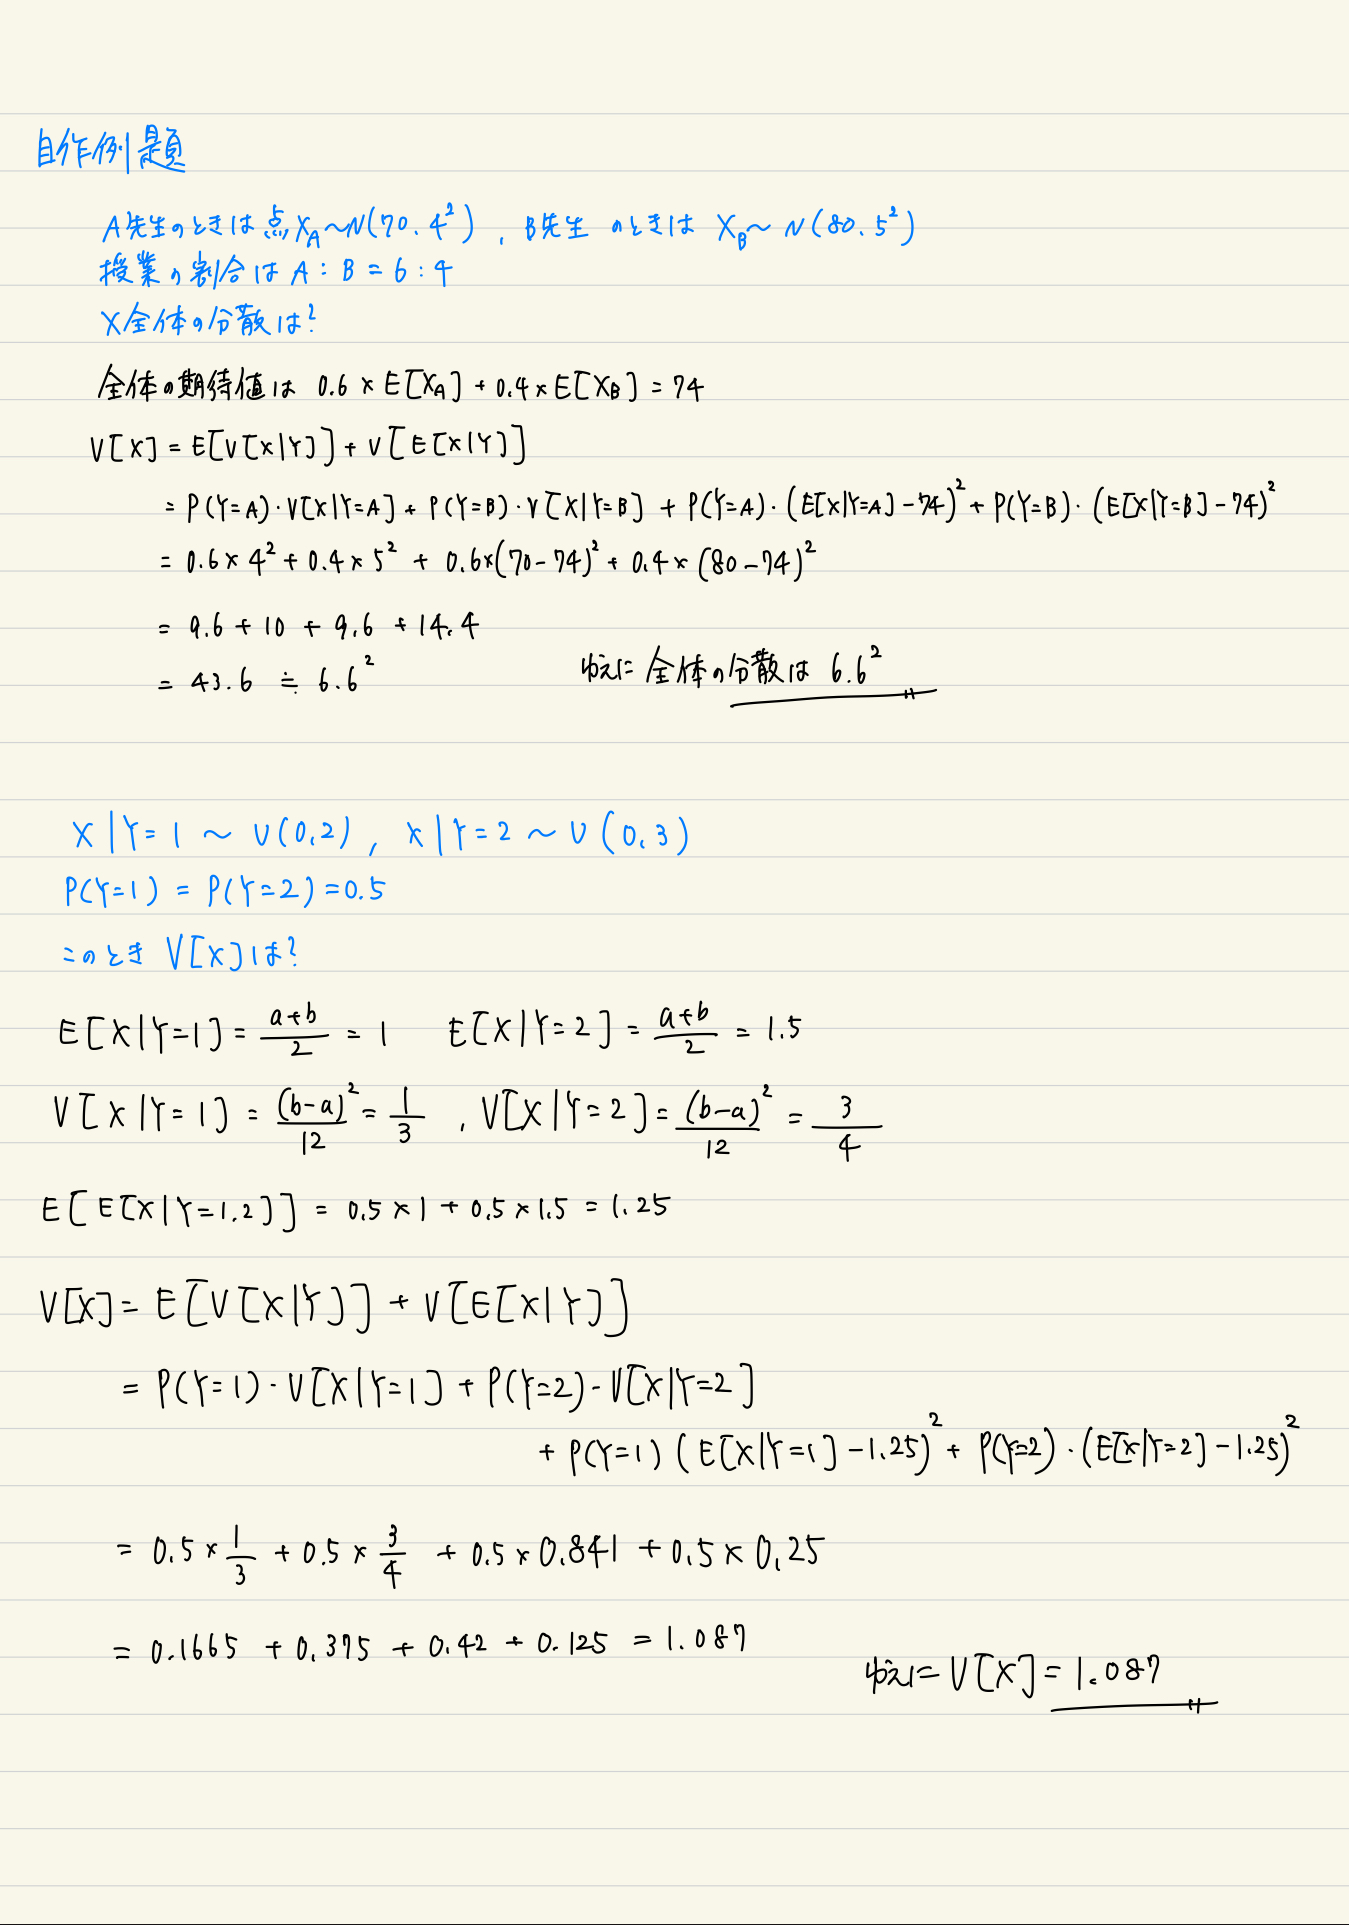 自作例題
A先生のときは点X_A~N(70.4²), B先生のときは X_B~N(80.5²)
授業の割合は A:B=6:4
X全体の分散は?
全体の期待値は 0.6×E[X_A]+0.4×E[X_B]=74
V[X]=E[V[X|Y]]+V[E[X|Y]]
=P(Y=A)・V[X|Y=A]+P(Y=B)・V[X|Y=B]+P(Y=A)・(E[X|Y=A]-74)²+P(Y=B)・(E[X|Y=B]-74)²
=0.6×4²+0.4×5²+0.6×(70-74)²+0.4×(80-74)²
=9.6+10+9.6+14.4
=43.6≒6.6² ゆえに 全体の分散は 6.6²
X|Y=1~U(0,2), X|Y=2~U(0,3)
P(Y=1)=P(Y=2)=0.5
このとき V[X]は?
E[X|Y=1]=\frac{a+b}{2}=1 E[X|Y=2]=\frac{a+b}{2}=1.5
V[X|Y=1]=\frac{(b-a)²}{12}=\frac{1}{3}, V[X|Y=2]=\frac{(b-a)²}{12}=\frac{3}{4}
E[E[X|Y=1.2]]=0.5×1+0.5×1.5=1.25
V[X]=E[V[X|Y]]+V[E[X|Y]]
=P(Y=1)・V[X|Y=1]+P(Y=2)・V[X|Y=2]
+P(Y=1)(E[X|Y=1]-1.25)²+P(Y=2)・(E[X|Y=2]-1.25)²
=0.5×\frac{1}{3}+0.5×\frac{3}{4}+0.5×0.841+0.5×0.25
=0.1665+0.375+0.42+0.125=1.087
ゆえに V[X]=1.087